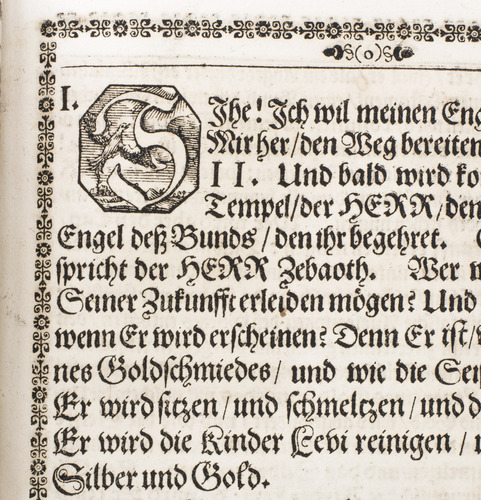 §(o)§
I.
SIhe! Ich wil meinen Eng
Mir her/den Weg bereiten
II. Und bald wird ko
Tempel/der HERR/den
Engel deß Bunds/den ihr begehret.
spricht der HERR Zebaoth. Wer w
Seiner Zukunfft erleiden mögen? Und
wenn Er wird erscheinen? Denn Er ist/
nes Goldschmiedes/ und wie die Sei
Er wird sitzen/und schmeltzen/und d
Er wird die Kinder Levi reinigen/
Silber und Gold.